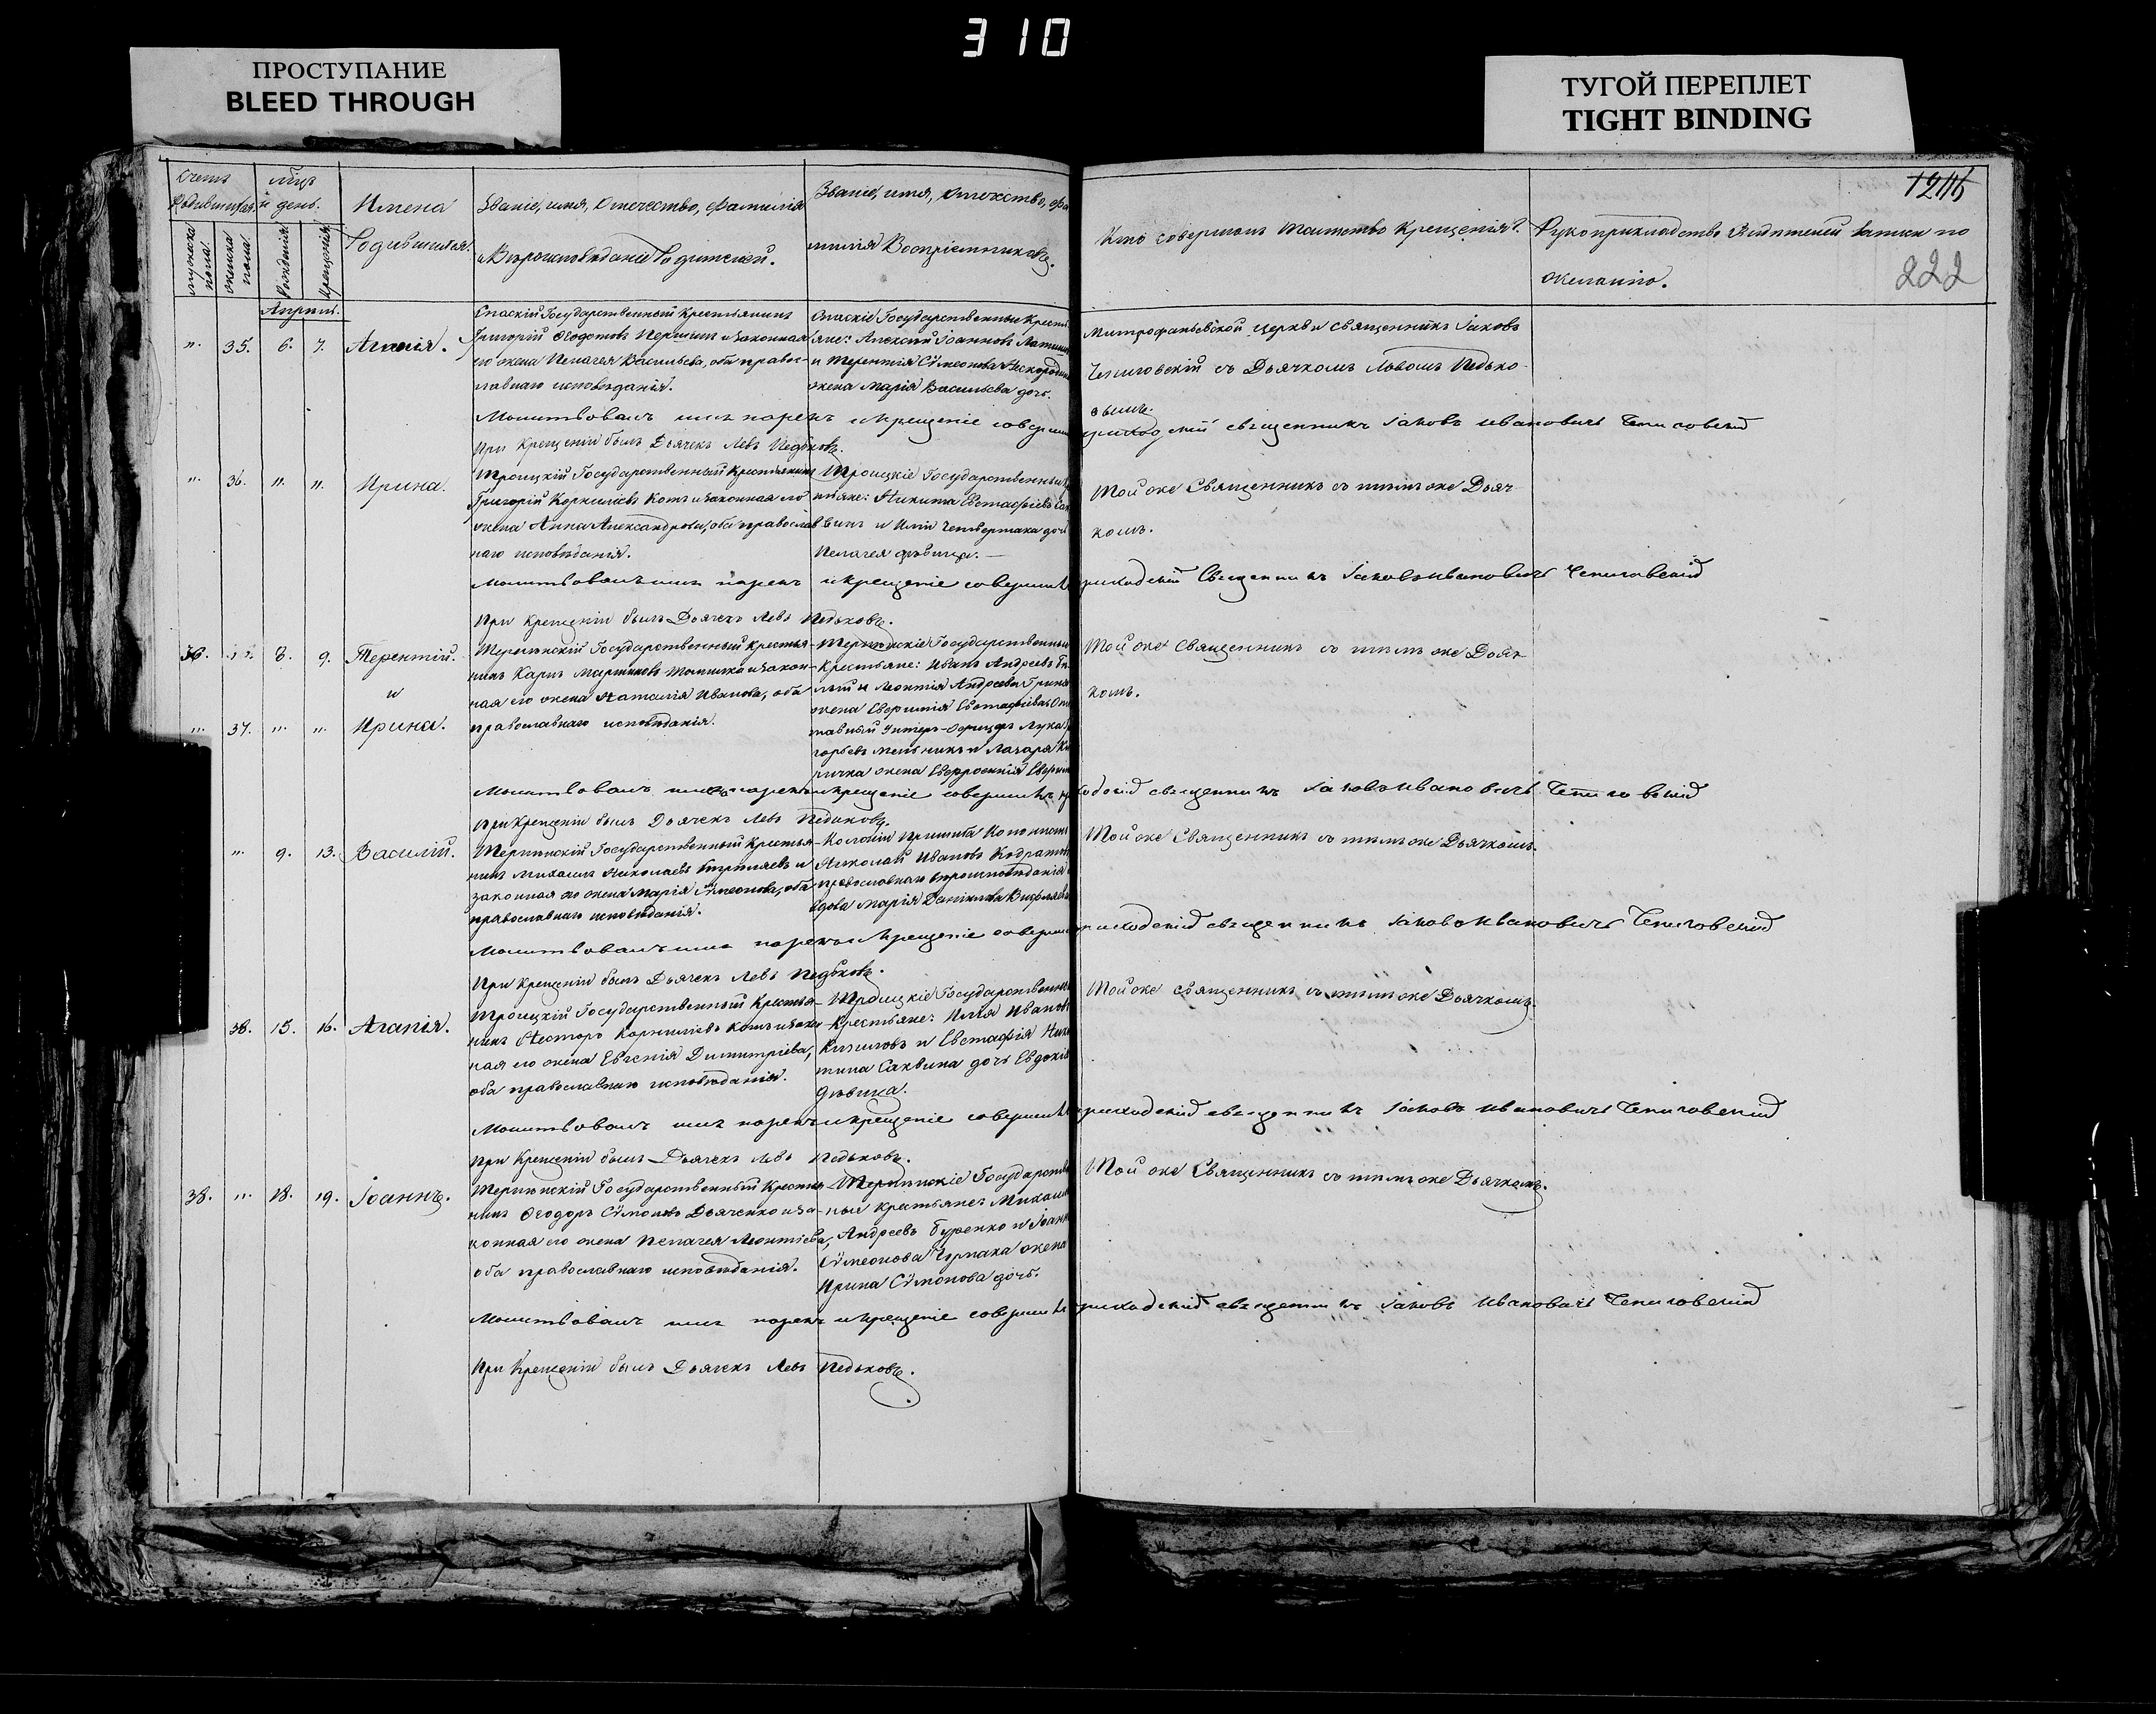 310
ПРОСТУПАНИЕ
BLEED THROUGH
ТУГОЙ ПЕРЕПЛЕТ
TIGHT BINDING
222
Счетъ Родившихся.
мужеска пола.
женска пола.
мѣц. и день.
Рожденія.
Крещенія.
Имена
Родившихся.
Званіе, имя, Отечество, фамилія
и Вѣроисповѣданіе Родителей.
Званіе, имя, отечество, фа
милія Воспріемниковъ.
Кто совершалъ таинство Крещенія?
Рукоприкладство Свидѣтелей записи по
желанію.
Апрѣль.
". 35. 6. 7. Агапія.
Спаскій Государственный Крестьянинъ
Григорій Ѳеодотовъ и законная
его жена Пелагея Васильева, оба правос-
лавнаго исповѣданія.
Спаскіе Государственные Кресть
яне: Алексѣй Іоанновъ
и Терентія Сѵмеонова
жена Марія Васильева дочь.
Митрофаньевской церкви священникъ Іаковъ
Чепиговскій съ Дьячкомъ Львомъ Педько-
вымъ.
Молитвовалъ имя нарекъ и крещеніе соверши
приходскій священникъ Іаковъ Ивановичъ Чепиговскій
При Крещеніи былъ Дьячекъ Левъ Педьковъ.
". 36. ". ". Ирина.
Троицкій Государственный Крестьянинъ
Григорій Корниліевъ Котъ и законная его
жена Анна Александрова, оба православ
наго исповѣданія.
Троицкіе Государственные
Никита Евстафіевъ Сак
винъ и Иліи Четвертака дочь
Пелагея дѣвица.
Той же Священникъ съ тѣмъ же Дьяч
комъ.
Молитвовалъ имя нарекъ и крещеніе совершилъ
приходскій Священникъ Іаковъ Ивановичъ Чепиговскій
При Крещеніи былъ Дьячекъ Левъ Педьковъ.
8. 9. Терентій.
и
". 37. ". ". Ирина.
Терпѣнскій Государственный Крестья-
нинъ Карпъ Мартиновъ и закон-
ная его жена Наталія Иванова, оба
православнаго исповѣданія.
Терпѣнскіе Государственные
Крестьяне: Иванъ Андреевъ
и Леонтія Андреева
жена Евстафіева, От
тавный Унтеръ-Офицеръ Лука
Мельникъ и Лазаря
жена Евфросинія
Той же Священникъ съ тѣмъ же Дьяч
комъ.
Молитвовалъ имена нарекъ и крещеніе совершилъ
священникъ Іаковъ Ивановичъ Чепиговскій
При Крещеніи былъ Дьячекъ Левъ Педьковъ.
". 9. 13. Василій.
Терпѣнскій Государственный Крестья-
нинъ Михаилъ Николаевъ и
законная его жена Марія Сѵмеонова, оба
православнаго исповѣданія.
Колоніи Пришиба Колонистъ
Николай Ивановъ
православнаго вѣроисповѣданія
вдова Марія Данилова
Той же Священникъ съ тѣмъ же Дьячкомъ.
Молитвовалъ имя нарекъ и крещеніе соверши
приходскій священникъ Іаковъ Ивановичъ Чепиговскій
При Крещеніи былъ Дьячекъ Левъ Педьковъ.
38. 15. 16. Агапія.
Троицкій Государственный Крестья-
нинъ Несторъ Корниліевъ Котъ и закон
ная его жена Евгенія Димитріева,
оба православнаго исповѣданія.
Троицкіе Государственные
Крестьяне: Илія Ивановъ
и Евстафія Ники
тина Саквина дочь Евдокія
дѣвица.
Той же священникъ съ тѣмъ же Дьячкомъ.
Молитвовалъ имя нарекъ и крещеніе совершилъ
приходскій священникъ Іаковъ Ивановичъ Чепиговскій
При Крещеніи былъ Дьячекъ Левъ Педьковъ.
38. ". 18. 19. Іоаннъ.
Терпѣнскій Государственный Крестья
нинъ Ѳеодоръ Сѵмоновъ Дьяченко и за-
конная его жена Пелагея Леонтіева,
оба православнаго исповѣданія.
Терпѣнскіе Государствен
ные Крестьяне: Михаилъ
Андреевъ и Іоанна
Сѵмеонова Чумака жена
Ирина Сѵмонова дочь.
Той же Священникъ съ тѣмъ же Дьячкомъ.
Молитвовалъ имя нарекъ и крещеніе совершилъ
приходскій священникъ Іаковъ Ивановичъ Чепиговскій
При Крещеніи былъ Дьячекъ Левъ Педьковъ.